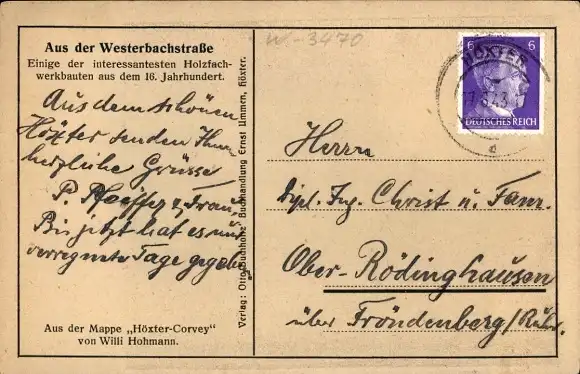 Aus der Westerbachstraße
Einige der interessantesten Holzfach-
werkbauten aus dem 16. Jahrhundert.
Aus dem schönen
Höxter senden Ihnen
herzliche Grüsse
P. Pfeiffer u. Frau.
Bis jetzt hat es nur
verregnete Tage gegeben
Aus der Mappe „Höxter-Corvey"
von Willi Hohmann.
Verlag: Otto Buchholz' Buchhandlung Ernst Limmen, Höxter.
W-3470
6 6
DEUTSCHES REICH
HÖXTER
Herrn
Dipl. Ing. Christ u. Fam.
Ober-Rödinghausen
über Fröndenberg/Ruhr.